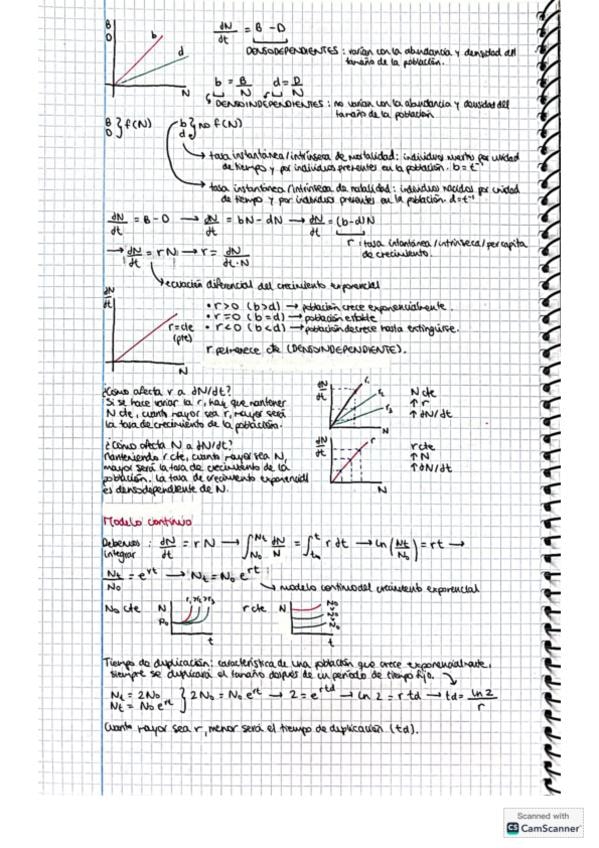 B
D
b
d
N
dN/dt = B - D
DENSODEPENDIENTES: varían con la abundancia y densidad del
tamaño de la población.
b = B/N d = D/N
DENSOINDEPENDIENTES: no varían con la abundancia y densidad del
tamaño de la población
B
D } f(N) b
d } no f(N)
tasa instantánea/intrínseca de mortalidad: individuos muertos por unidad
de tiempo y por individuos presentes en la población. b = t⁻¹
tasa instantánea/intrínseca de natalidad: individuos nacidos por unidad
de tiempo y por individuos presentes en la población. d = t⁻¹
dN/dt = B - D → dN/dt = bN - dN → dN/dt = (b-d)N
r: tasa instantánea/intrínseca/per capita
de crecimiento.
→ dN/dt = rN → r = dN/dt·N
ecuación diferencial del crecimiento exponencial
dN/dt
r = cte
(pte)
N
• r>0 (b>d) → población crece exponencialmente.
• r=0 (b=d) → población estable
• r<0 (b<d) → población decrece hasta extinguirse.
r permanece cte (DENSOINDEPENDIENTE).
¿Cómo afecta r a dN/dt?
Si se hace variar la r, hay que mantener
N cte, cuanto mayor sea r, mayor será
la tasa de crecimiento de la población.
dN/dt
r₁
r₂
r₃
N
N cte
↑ r
↑ dN/dt
¿Cómo afecta N a dN/dt?
Manteniendo r cte, cuanto mayor sea N,
mayor será la tasa de crecimiento de la
población. La tasa de crecimiento exponencial
es densodependiente de N.
dN/dt
r
N
r cte
↑ N
↑ dN/dt
Modelo continuo
Debemos integrar: dN/dt = rN → ∫N₀ Nt dN/N = ∫t₀ t r dt → ln(Nt/N₀) = rt →
Nt/N₀ = e^rt → Nt = N₀ e^rt
modelo continuo del crecimiento exponencial
N₀ cte N r₁>r₂>r₃ t
r cte N t
Tiempo de duplicación: característica de una población que crece exponencialmente,
siempre se duplicará el tamaño después de un período de tiempo fijo.
Nt = 2N₀
Nt = N₀ e^rt } 2N₀ = N₀ e^rt → 2 = e^rtd → ln 2 = r td → td = ln 2/r
Cuanto mayor sea r, menor será el tiempo de duplicación (td).
Scanned with
CS CamScanner